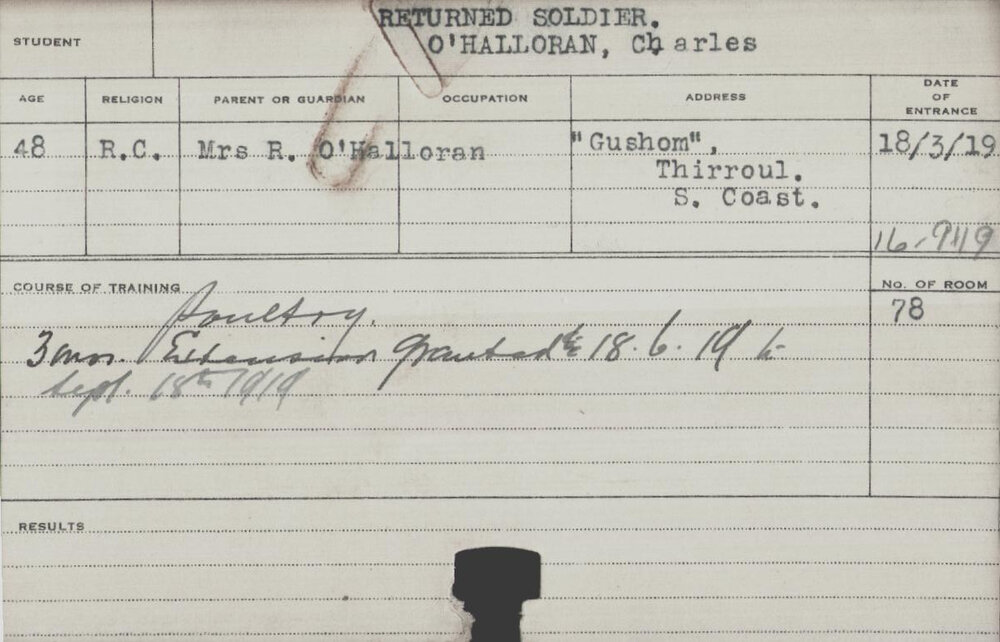 RETURNED SOLDIER.
STUDENT O'HALLORAN, Charles
AGE RELIGION PARENT OR GUARDIAN OCCUPATION ADDRESS DATE OF ENTRANCE
48 R.C. Mrs R. O'Halloran "Gushom", 18/3/19
Thirroul.
S. Coast.
16.9.19
COURSE OF TRAINING No. OF ROOM
Poultry. 78
3 mos. Extension granted 18.6.19 to
Sept. 18th 1919
RESULTS